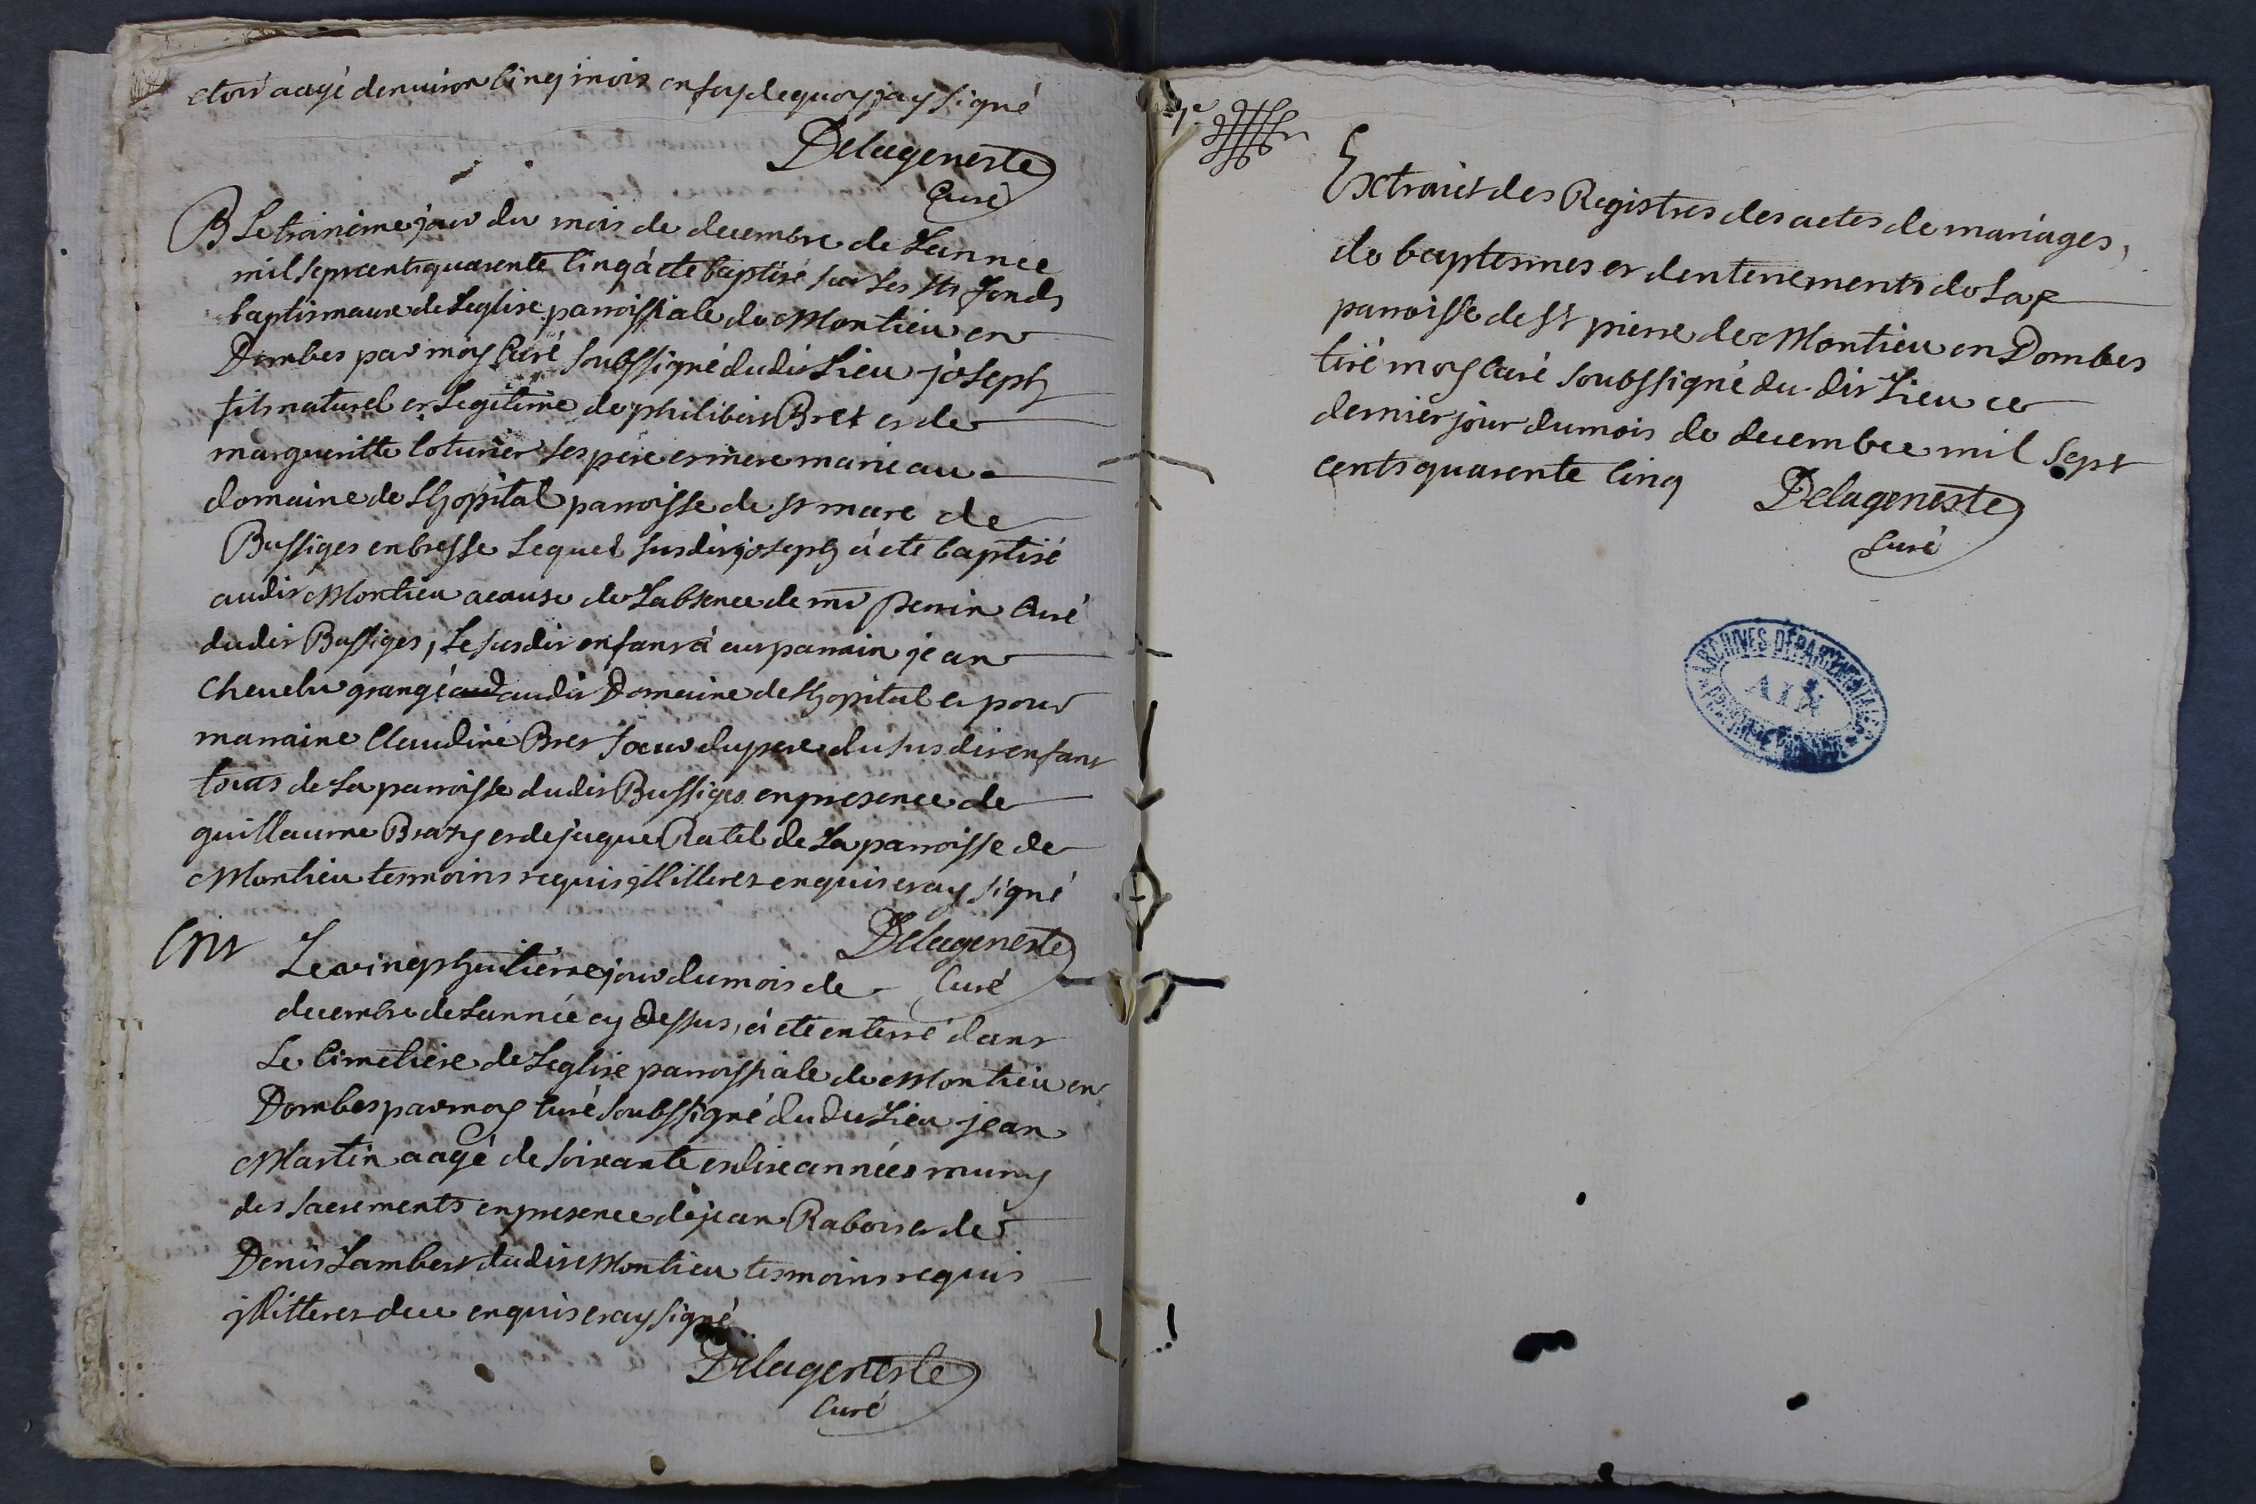 etoit aagé denuiron Cinq mois en foy de quoy jay signé
Delageneste
Curé
B Le troisieme jour du mois de decembre de Lannee
mil sept cents quarente Cinq à ete baptisé sur Les sts fonds
baptismaux de Leglise parroissiale de Montieu en
Dombes par moy Curé soubssigné dudit Lieu joseph
fils naturel et Legitime de philibert Bret et de
margueritte Coturier ses pere et mere marié au
domaine de Lhopital parroisse de st marc de
Bussiges en bresse Lequel susdit joseph à ete baptisé
audit Montieu acause de Labsence de mr Perrin Curé
dudit Bussiges, Le susdit enfant à eut parrain jean
Chevelu grangé audit Domaine de Lhopital et pour
marraine Claudine Bret soeur du pere du susdit enfant
touts de La parroisse dudit Bussiges en presence de
guillaume Brazy et de jaque Ratel de La parroisse de
Montieu tesmoins requis illitteres enquis et ay signé
Delageneste
Curé
Ent Le vingt huitieme jour du mois de
decembre de Lannée cy dessus, à ete enterré dans
Le Cimetiere de Leglise parroissiale de Montieu en
Dombes par moy Curé soubssigné dudit Lieu jean
Martin aagé de soixante et dix années muny
des sacrements en presence de jean Rabois et de
Denis Lambert dudit Montieu tesmoins requis
illitteres de ce enquis et ay signé
Delageneste
Curé
Extrait des Registres des actes de mariages,
de baptesmes et denterrements de La
parroisse de st pierre de Montieu en Dombes
tiré moy Curé soubssigné du dit Lieu ce
dernier jour du mois de decembre mil sept
cents quarente Cinq
Delageneste
Curé
ARCHIVES DÉPARTEMENTALES
AIN